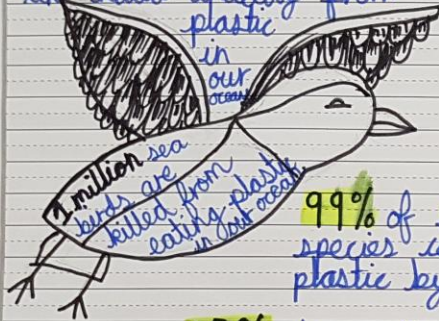 plastic
in
our
ocean
1 million sea
birds are
killed from
eating plastic
in our ocean
99% of
species
plastic by